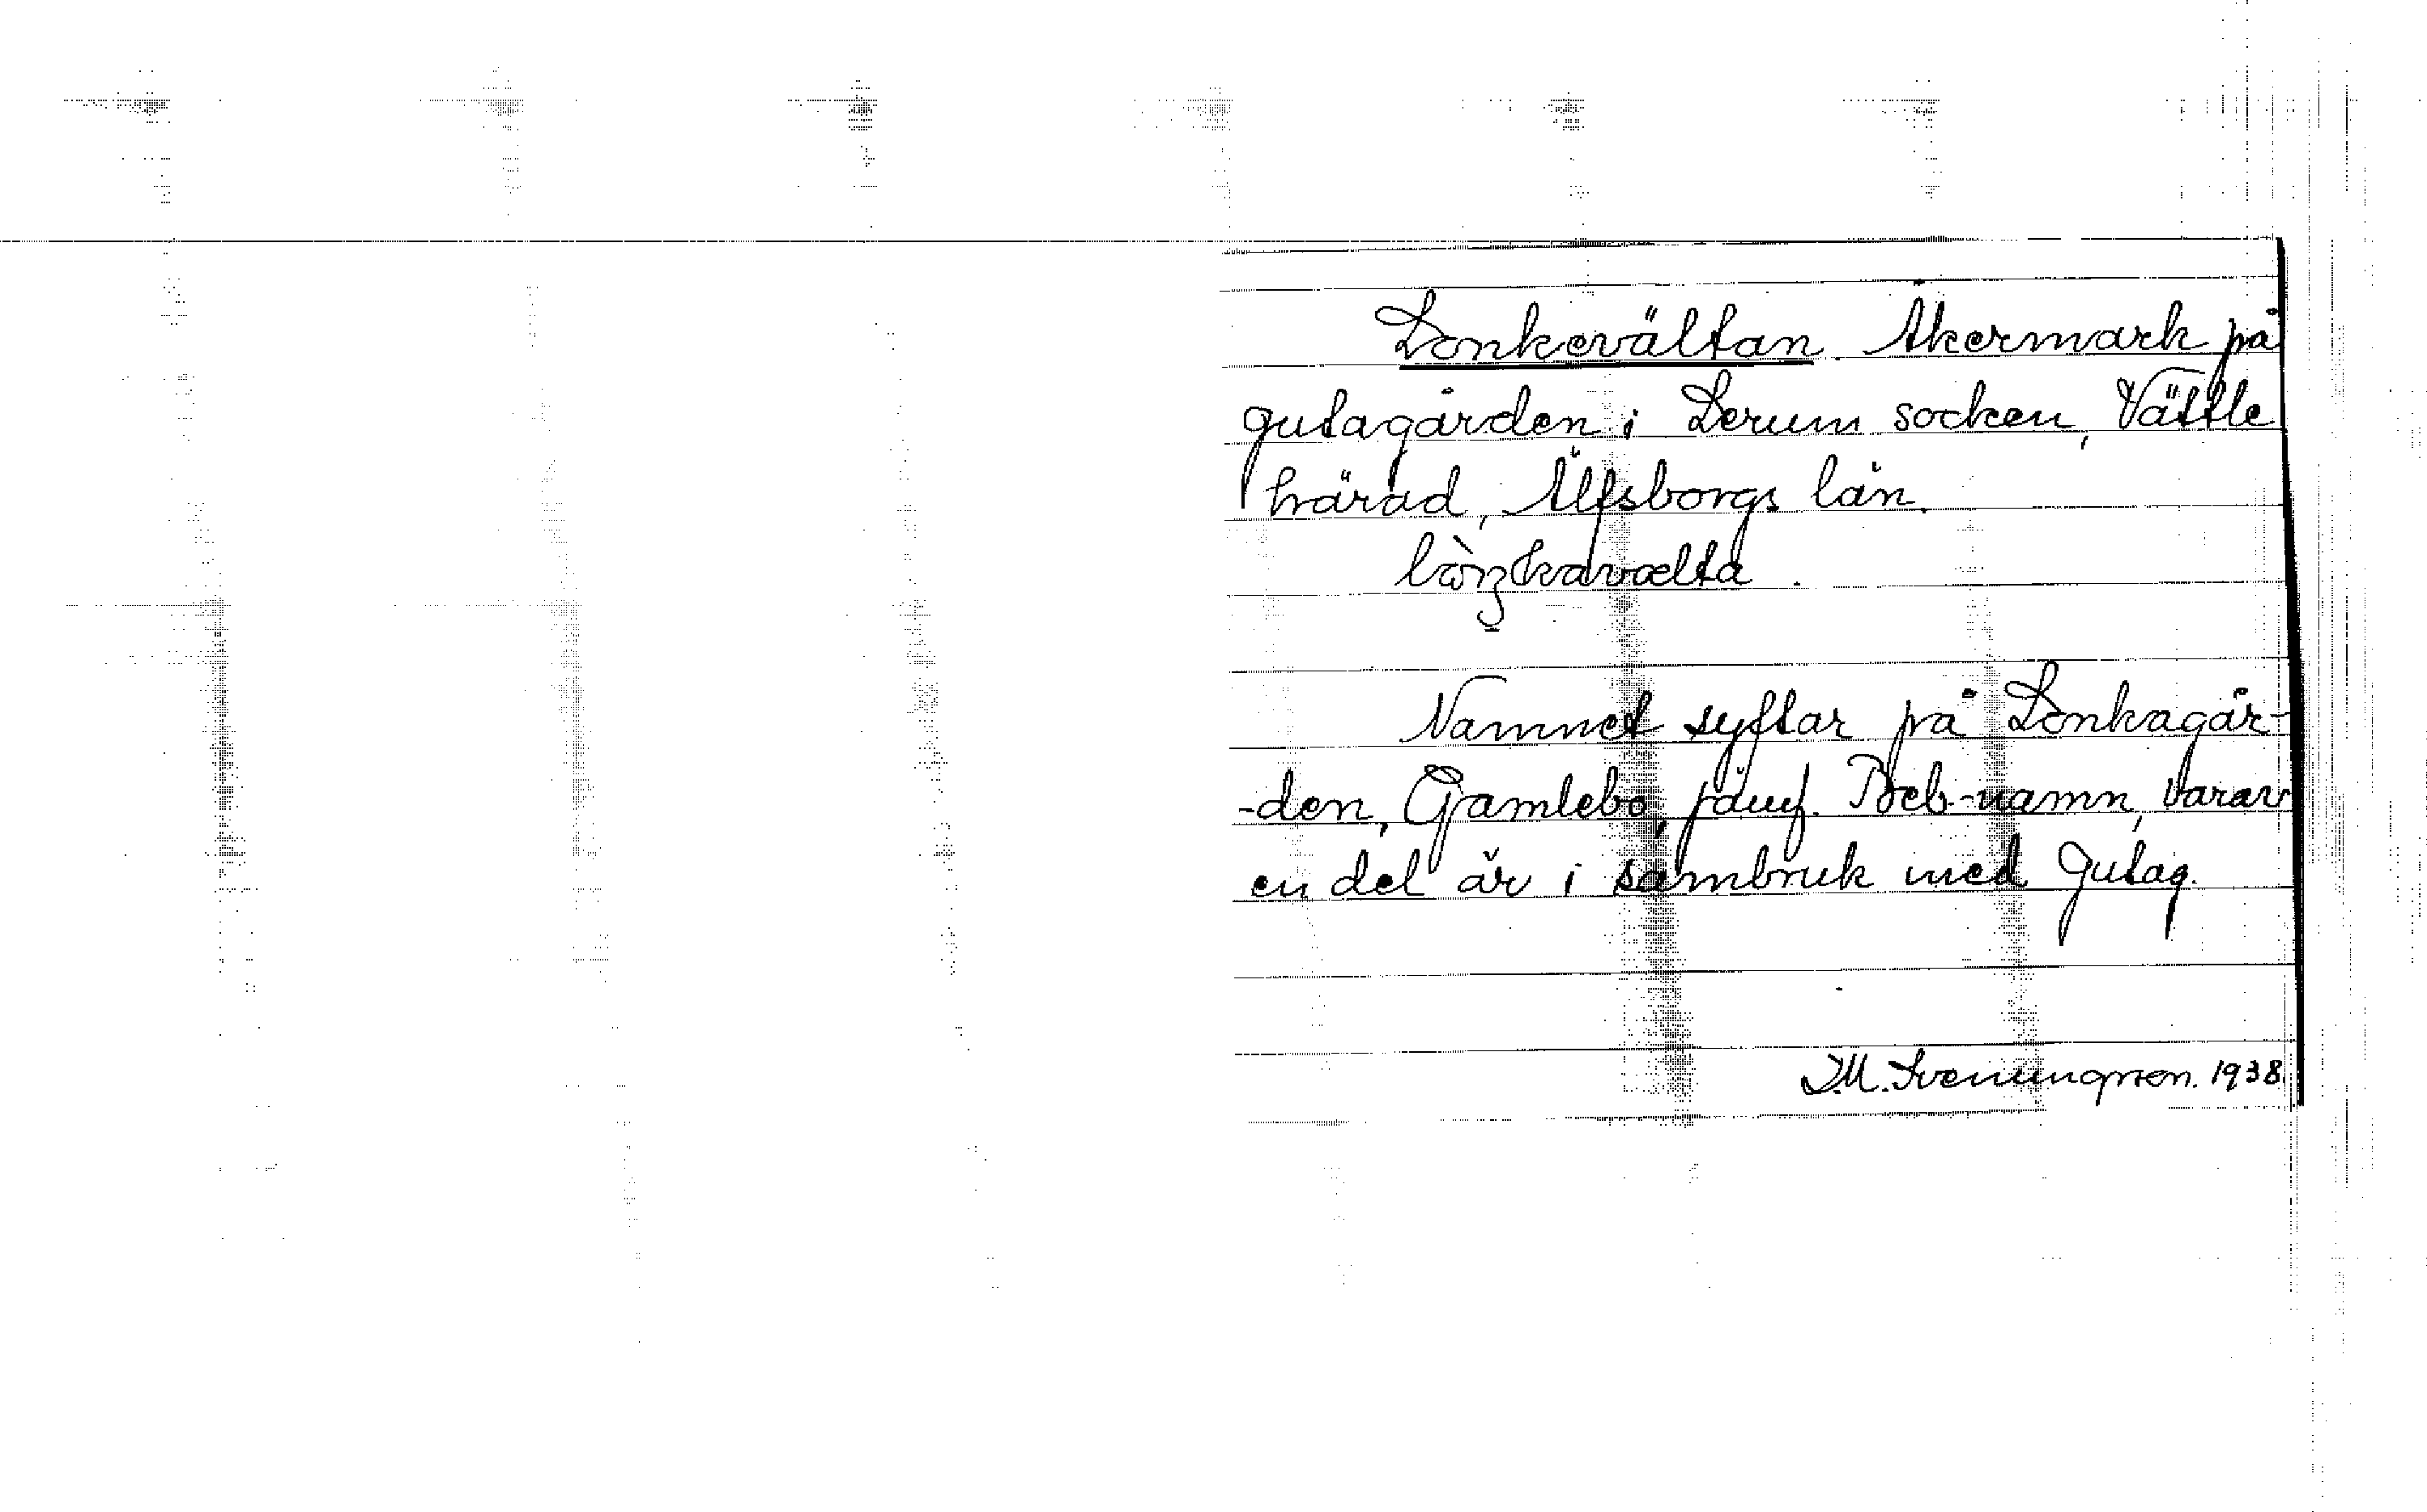 Lonkevältan. Åkermark på
Gutagården i Lerum socken, Vättle
härad, Älfsborgs län.
Namnet syftar på Lonkagår-
-den, Gamlebo, jämf. Beb-namn, varav
en del är i sambruk med Gutag.
J.M. Svenungsson. 1938